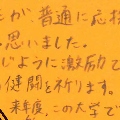 たが、普通に応援
思いました。
じように激励で
健闘を祈ります。
来年度、この大学で